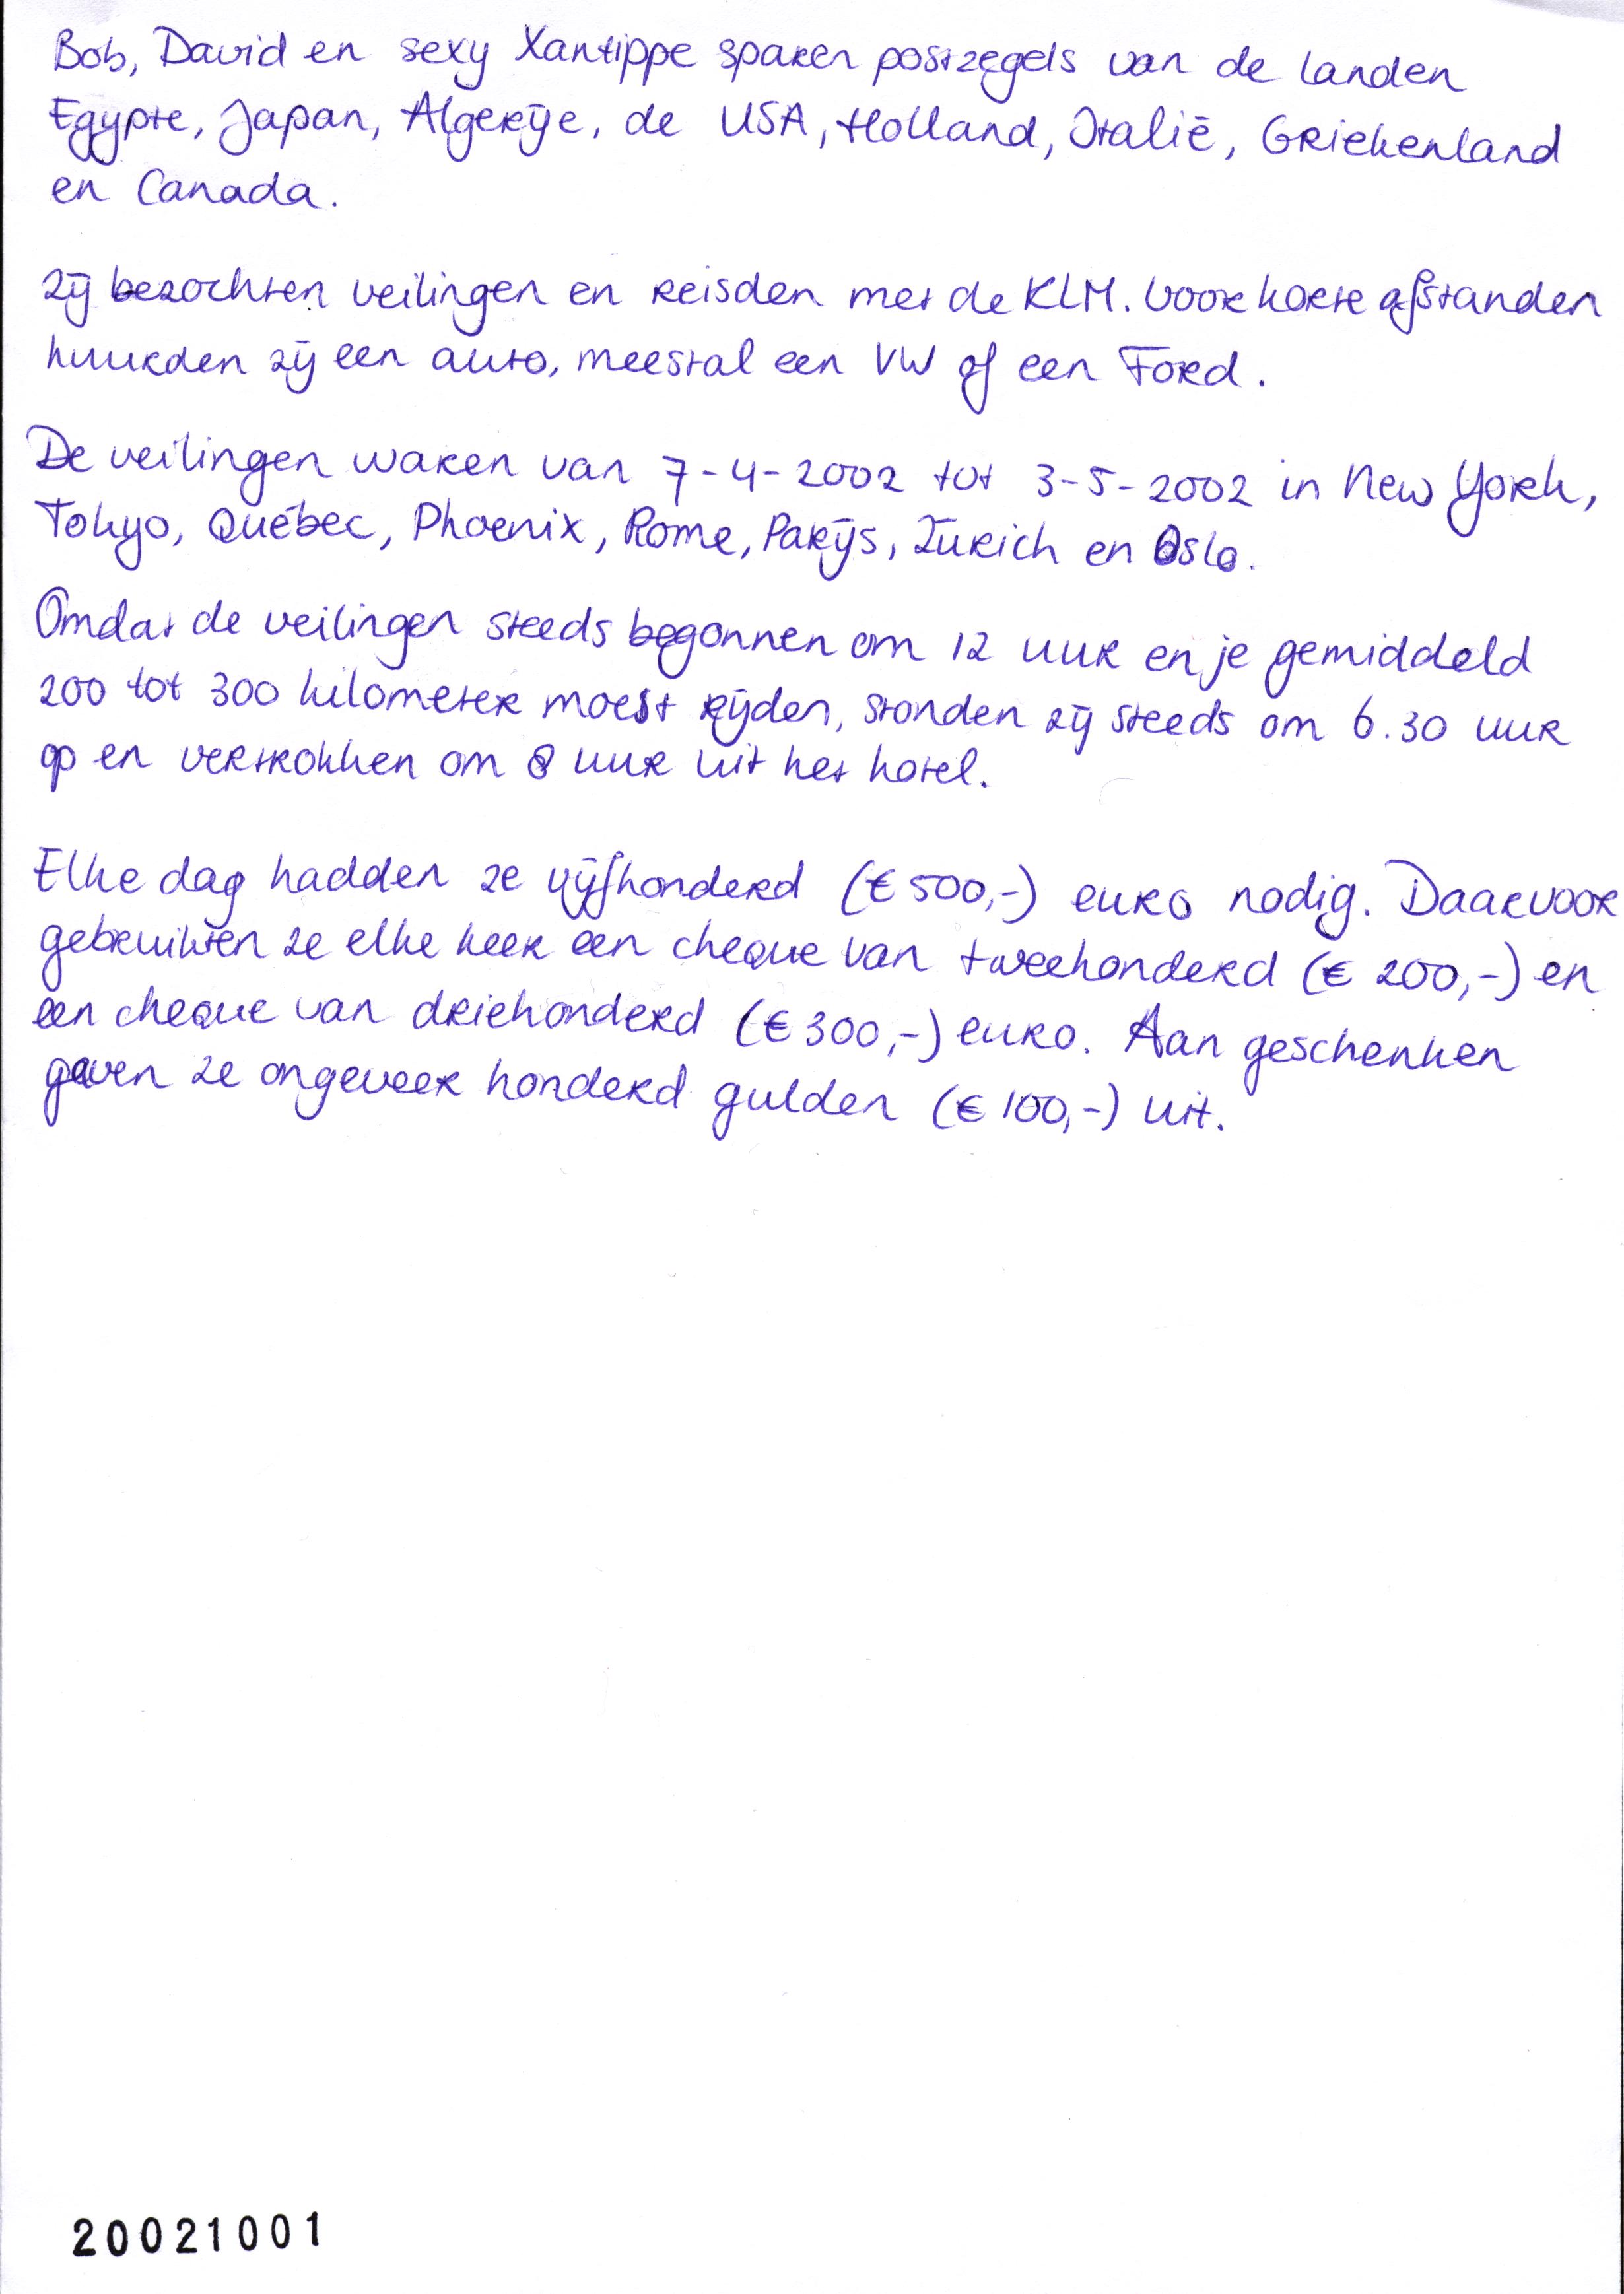 Bob, David en sexy Xantippe sparen postzegels van de landen
Egypte, Japan, Algerije, de USA, Holland, Italië, Griekenland
en Canada.
Zij bezochten veilingen en reisden met de KLM. Voor korte afstanden
huurden zij een auto, meestal een VW of een Ford.
De veilingen waren van 7-4-2002 tot 3-5-2002 in New York,
Tokyo, Québec, Phoenix, Rome, Parijs, Zürich en Oslo.
Omdat de veilingen steeds begonnen om 12 uur en je gemiddeld
200 tot 300 kilometer moest rijden, stonden zij steeds om 6.30 uur
op en vertrokken om 8 uur uit het hotel.
Elke dag hadden ze vijfhonderd (€ 500,-) euro nodig. Daarvoor
gebruikten ze elke keer een cheque van tweehonderd (€ 200,-) en
een cheque van driehonderd (€ 300,-) euro. Aan geschenken
gaven ze ongeveer honderd gulden (€ 100,-) uit.
20021001